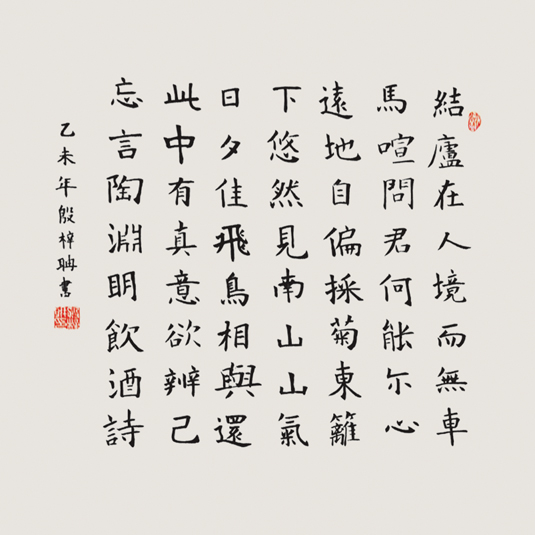 結廬在人境而無車
馬喧問君何能尓心
遠地自偏採菊東籬
下悠然見南山山氣
日夕佳飛鳥相與還
此中有真意欲辨己
忘言陶淵明飲酒詩
乙未年殷梓聃書